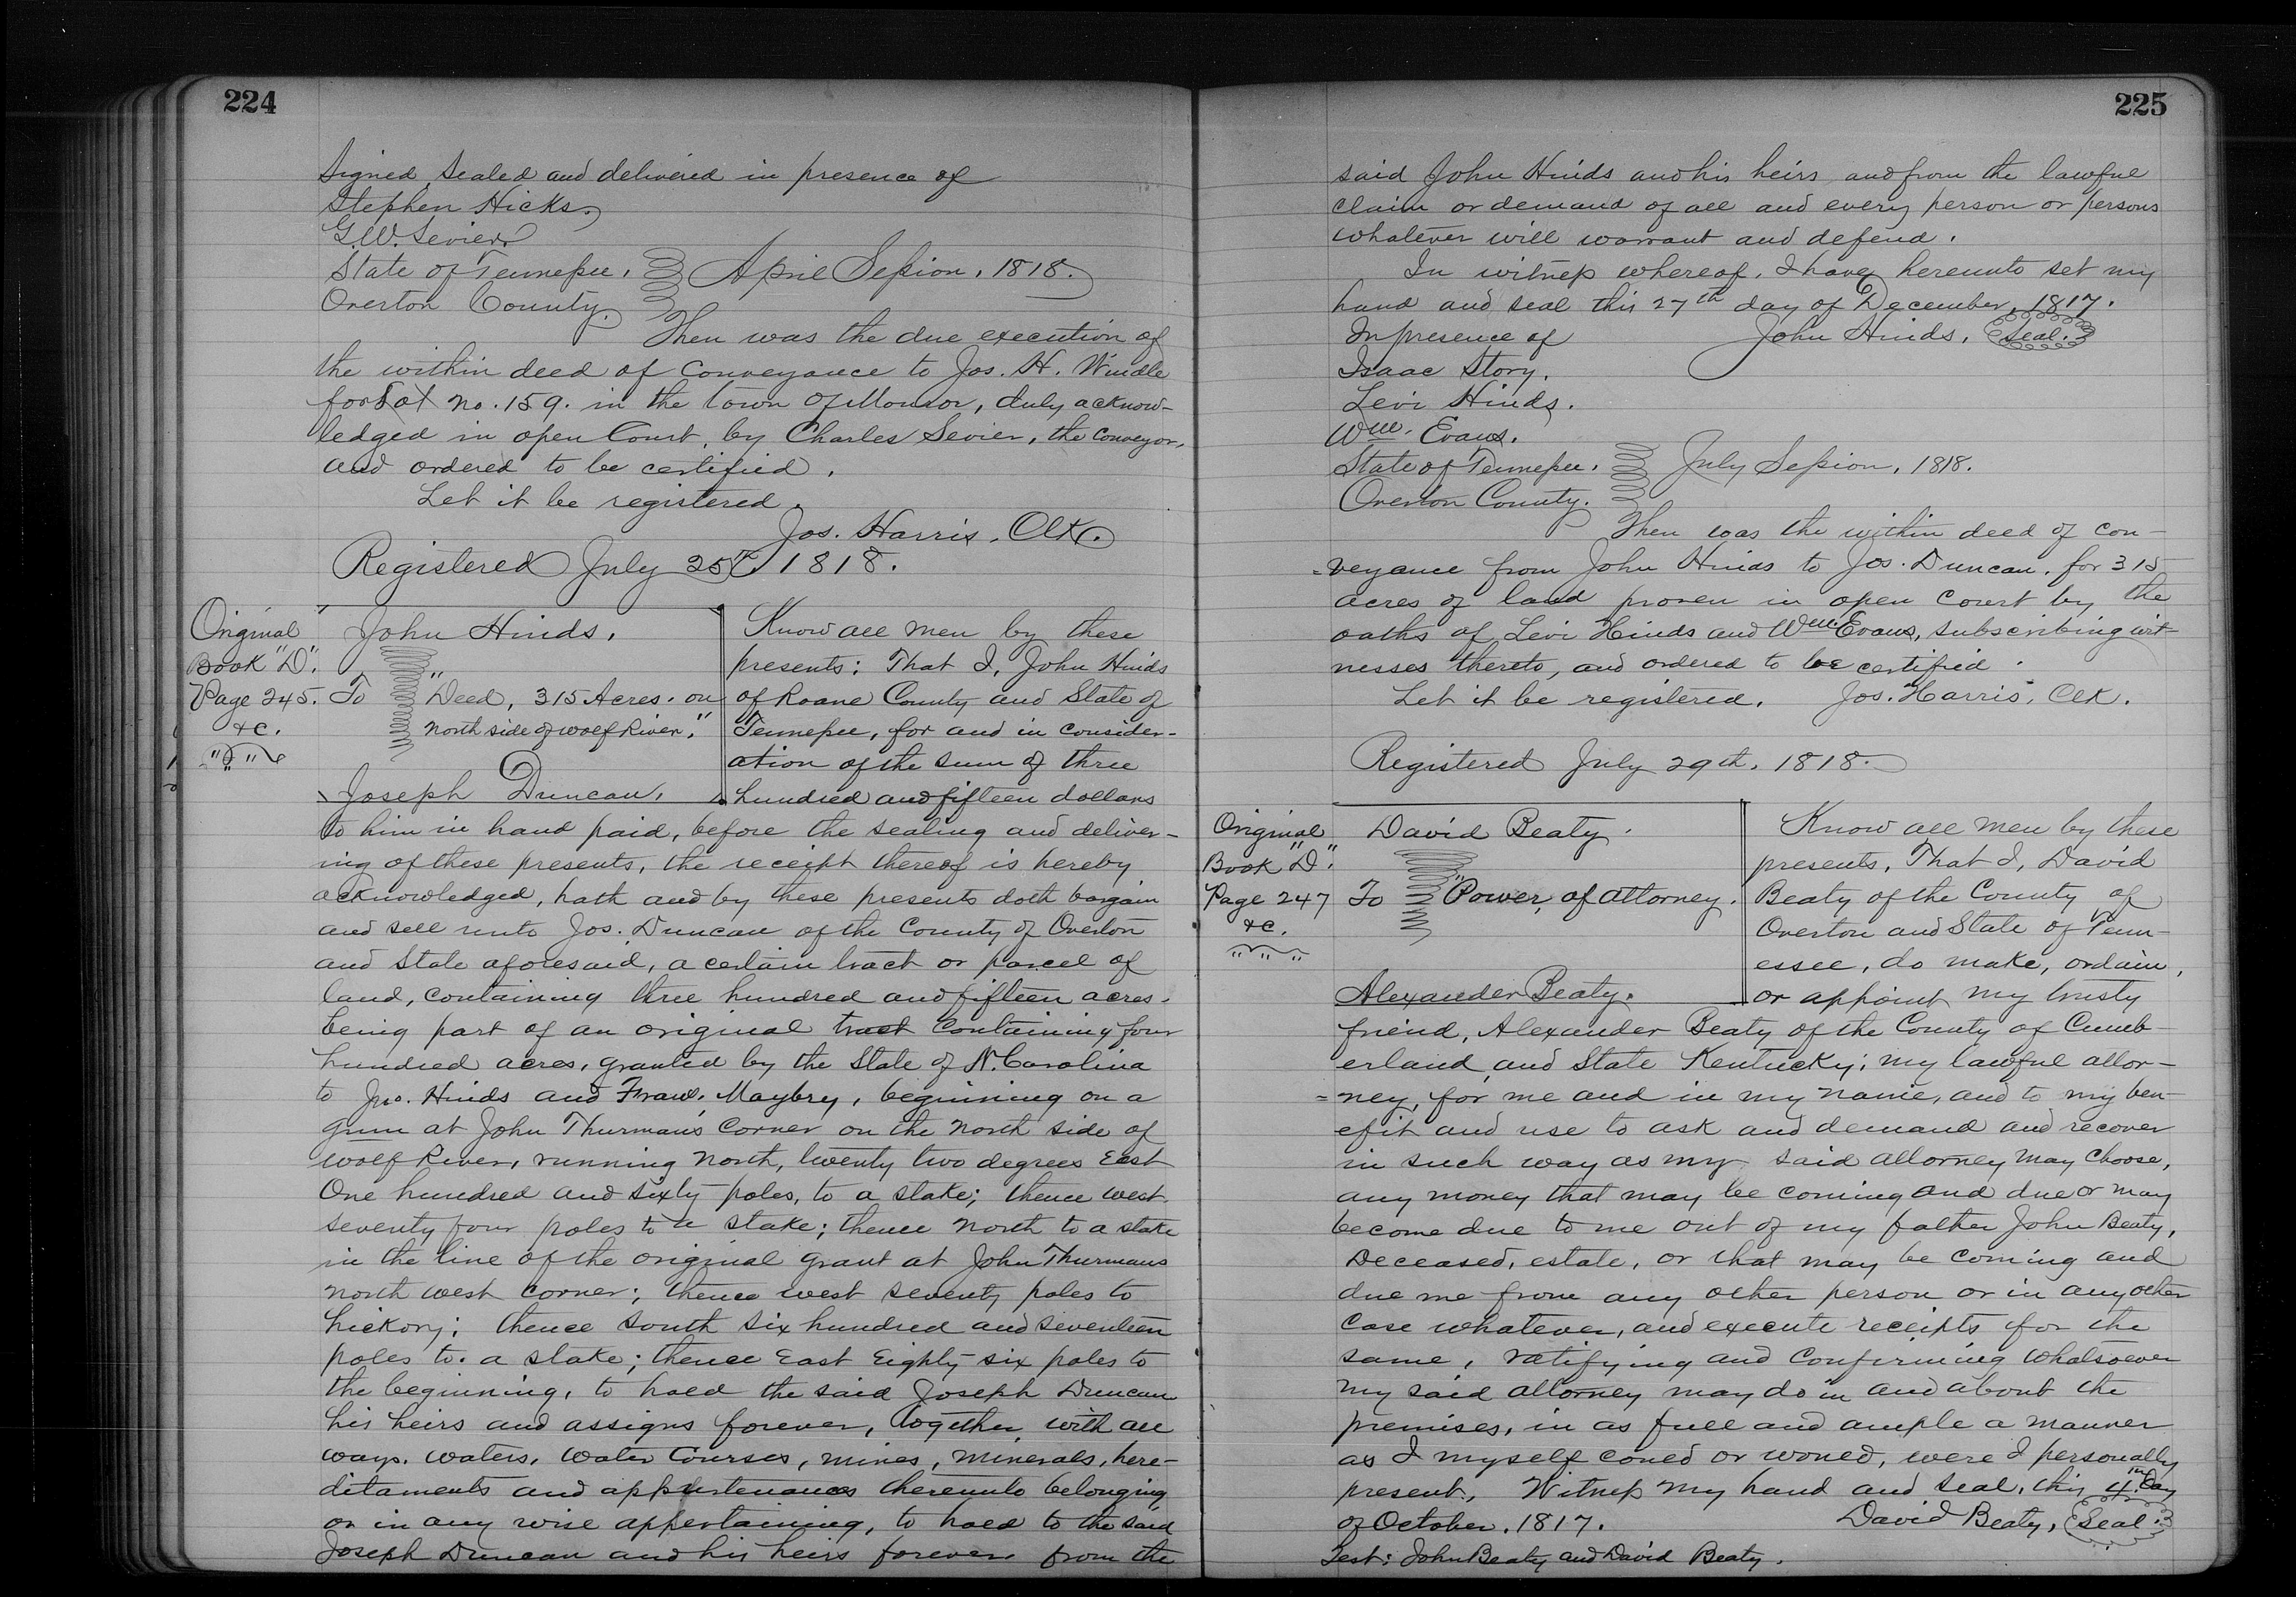 224
Signed, sealed and delivered in presence of
Stephen Hicks.
G.W. Sevier.
State of Tennessee, April Session, 1818.
Overton County.
Then was the due execution of
the within deed of conveyance to Jos. H. Windle
for Lot no. 159. in the town of Monroe, duly acknow-
ledged in open Court, by Charles Sevier, the conveyor,
and ordered to be certified.
Let it be registered.
Jos. Harris, Clk.
Registered July 25th 1818.
Original
Book "D".
Page 245.
&c.
John Hinds.
To "Deed, 315 Acres. on
north side of wolf River."
Joseph Duncan.
Know all men by these
presents: That I, John Hinds
of Roane County and State of
Tennessee, for and in consider-
ation of the sum of three
hundred and fifteen dollars
to him in hand paid, before the sealing and deliver-
ing of these presents, the receipt thereof is hereby
acknowledged, hath and by these presents doth bargain
and sell unto Jos. Duncan of the County of Overton
and State aforesaid, a certain tract or parcel of
land, containing three hundred and fifteen acres.
being part of an original tract containing four
hundred acres, granted by the State of N. Carolina
to Jno. Hinds and Maybry, beginning on a
gum at John Thurmans Corner on the north side of
wolf River, running north, twenty two degrees East
One hundred and sixty poles, to a stake; thence west
seventy four poles to a stake; thence north to a stake
in the line of the original grant at John Thurmans
north west corner; thence west seventy poles to
hickory; thence south six hundred and seventeen
poles to a stake; thence East Eighty six poles to
the beginning, to hold the said Joseph Duncan
his heirs and assigns forever, together with all
ways, waters, water courses, mines, minerals, here-
ditaments and appurtenances thereunto belonging
or in any wise appertaining, to hold to the said
Joseph Duncan and his heirs forever from the
225
said John Hinds and his heirs and from the lawful
claim or demand of all and every person or persons
whatever will warrant and defend.
In witness whereof, I have hereunto set my
hand and seal this 27th day of December, 1817.
In presence of John Hinds. Seal.
Isaac Story.
Levi Hinds.
Wm. Evans.
State of Tennessee. July Session, 1818.
Overton County.
Then was the within deed of con-
=veyance from John Hinds to Jos. Duncan. for 315
acres of land proven in open court by the
oaths of Levi Hinds and Wm. Evans, subscribing wit-
nesses thereto, and ordered to be certified.
Let it be registered. Jos. Harris, Clk.
Registered July 29th. 1818.
Original
Book "D".
Page 247
&c.
David Beaty.
To "Power, of attorney.
Alexander Beaty.
Know all men by these
presents, That I, David
Beaty of the County of
Overton and State of Tenn-
essee, do make, ordain,
or appoint my trusty
friend, Alexander Beaty of the County of Cumb-
erland, and State Kentucky; my lawful attor-
=ney, for me and in my name, and to my ben-
efit and use to ask and demand and recover
in such way as my said attorney may choose,
any money that may be coming and due or may
become due to me out of my father John Beaty,
Deceased, estate, or that may be coming and
due me from any other person or in any other
case whatever, and execute receipts for the
same, ratifying and confirming whatsoever
my said attorney may do in and about the
premises, in as full and ample a manner
as I myself coued or woued, were I personally
present. Witness my hand and seal, this 4th day
of October. 1817. David Beaty, Seal.
Test: John Beaty and David Beaty.